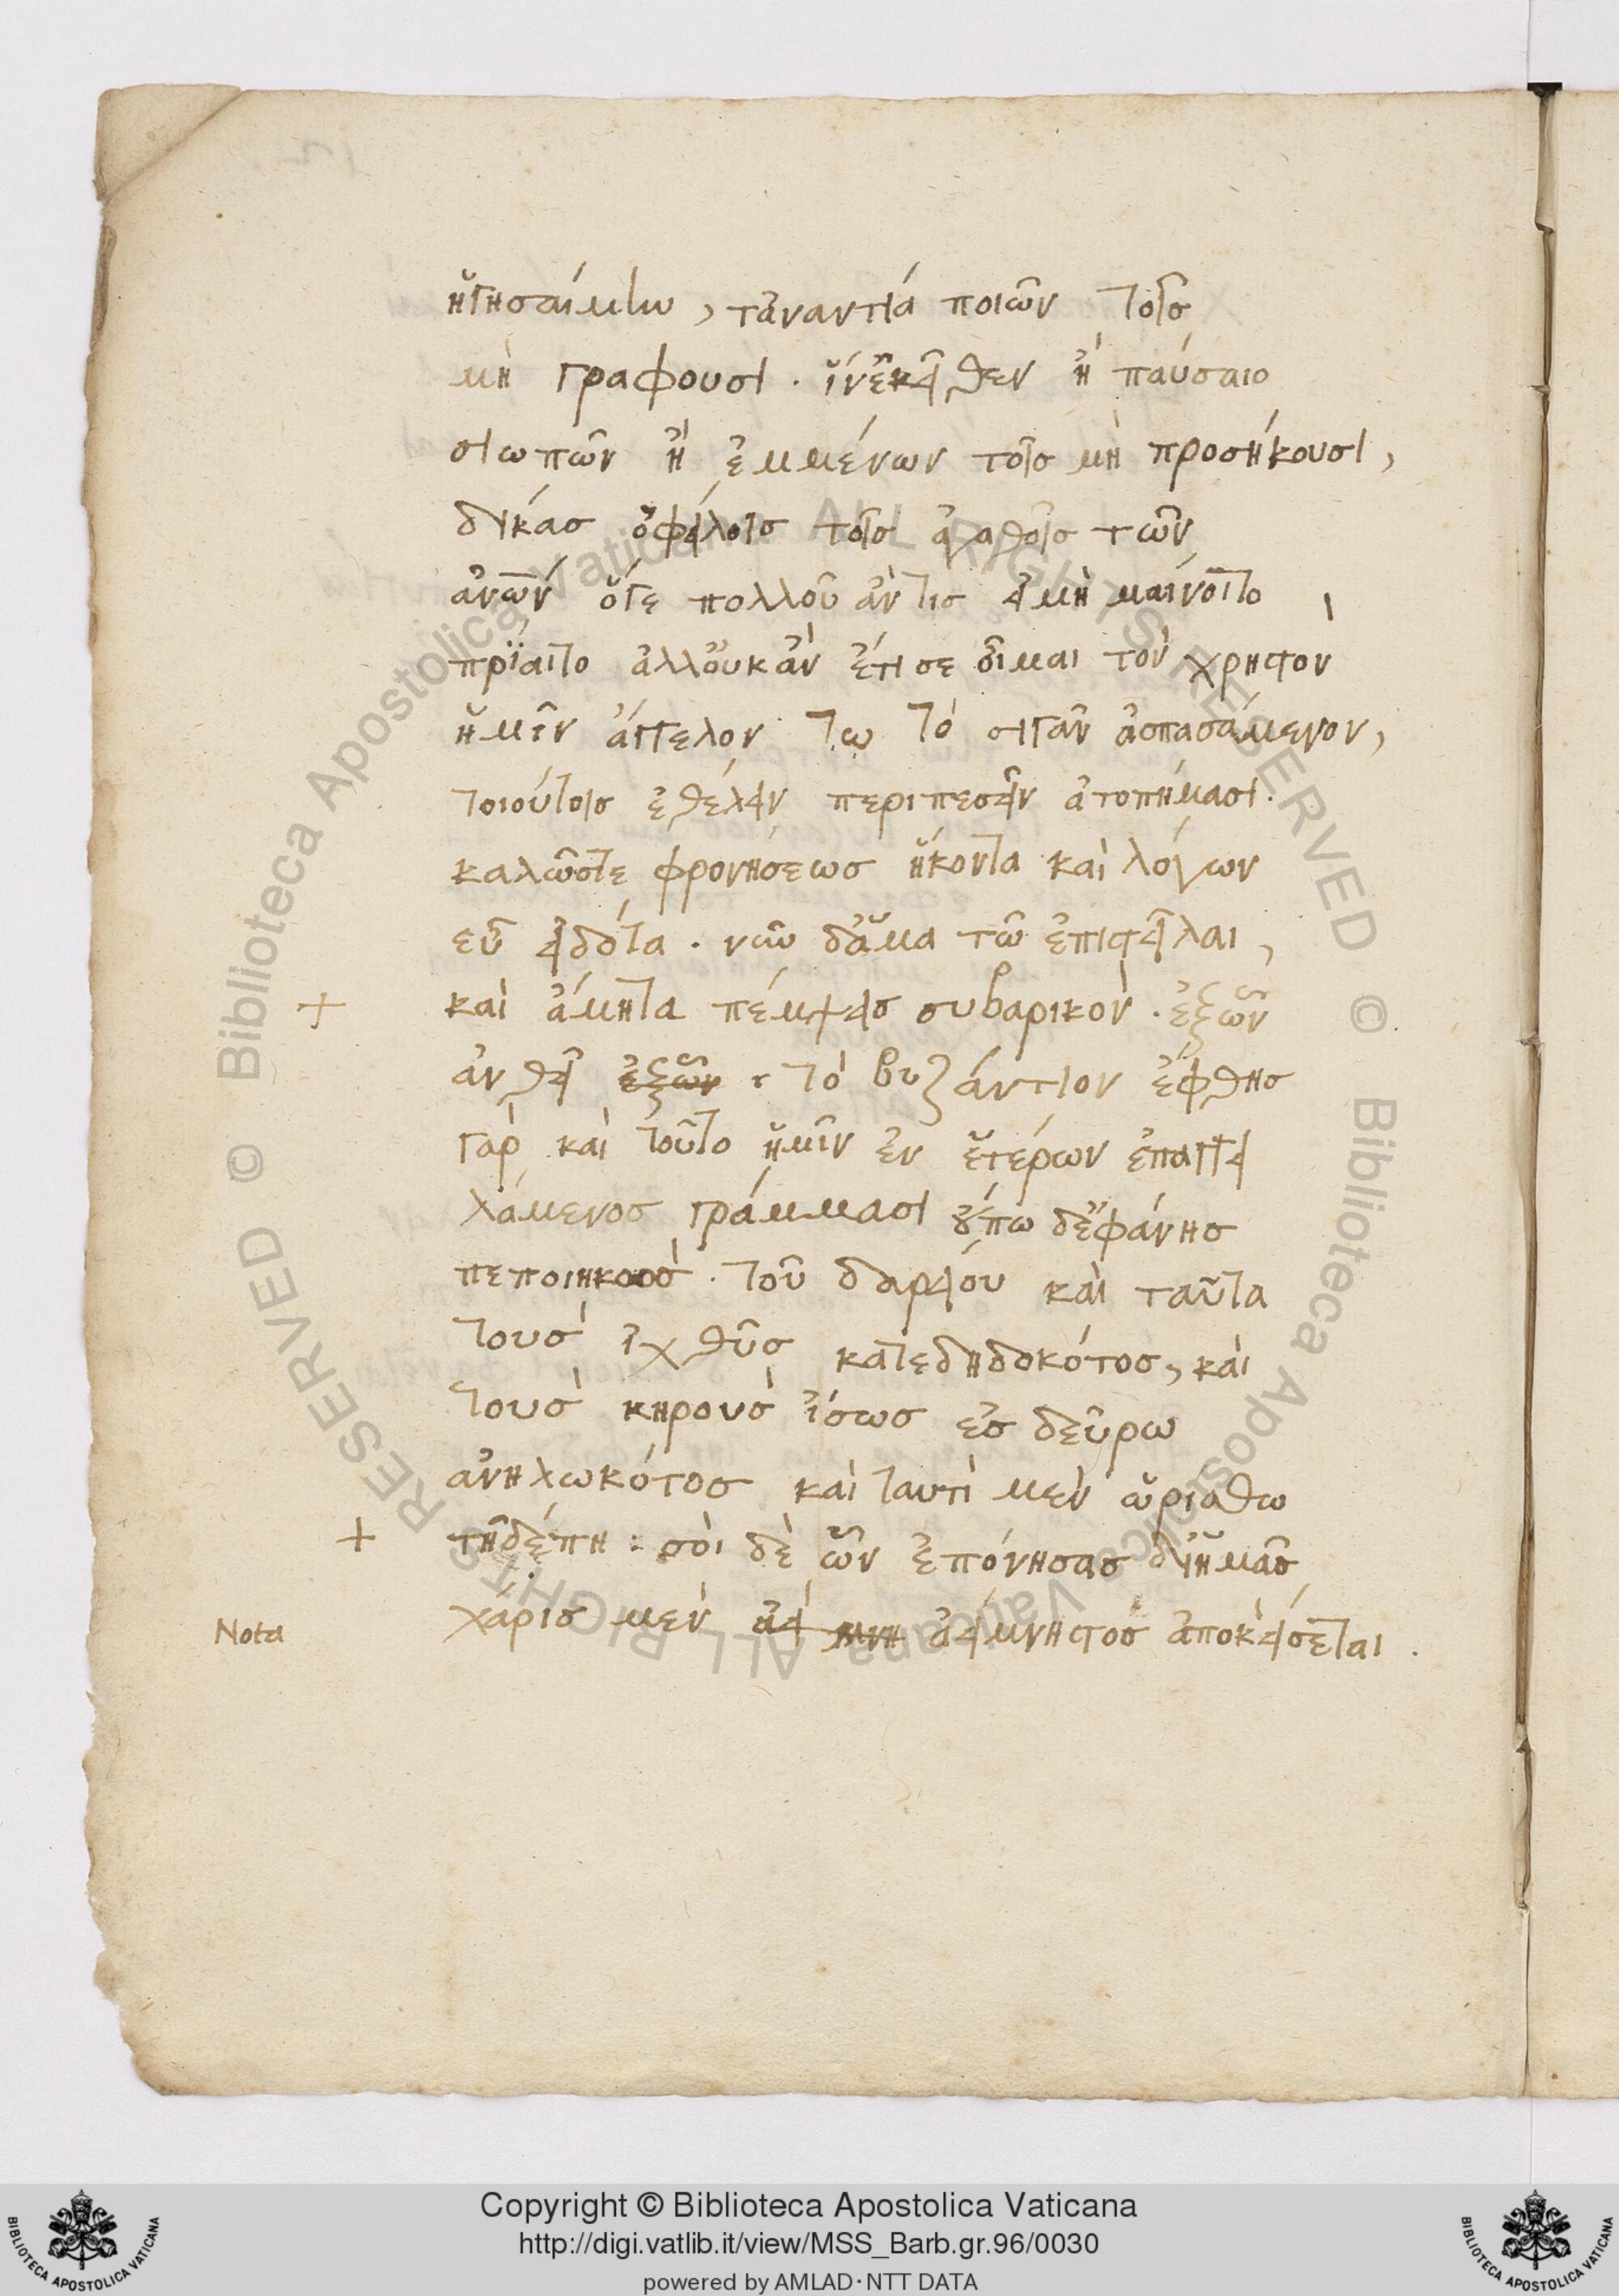 ἡγησαίμην, τἀναντία ποιῶν τοῖς
μὴ γραφουσι. ἵν ἐκεῖθεν ἢ παύσαιο
σιωπῶν ἢ ἐμμένων τοῖς μὴ προσήκουσι,
δίκας ὀφείλοις τοῖς ἀγαθοῖς τῶν
ἀνων ὅγε πολλοῦ ἄν τις εἰ μὴ μαίνοιτο
πρίαιτο ἀλλ οὐκ ἂν ἔτι σε οἶμαι τὸν χρηστὸν
ἡμῖν ἄγγελον τω τὸ σιγᾶν ἀσπασάμενον,
τοιούτοις ἐθέλειν περιπεσεῖν ἀτοπήμασι.
καλῶς τε φρονήσεως ἥκοντα καὶ λόγων
εὖ εἰδότα. νῦν δ ἅμα τῶ ἐπιστεῖλαι,
+ καὶ ἄμητα πέμψεις συβαρικὸν. ἐξ ὧν
ἀνθεῖ ἐξ ὧν τὸ βυζάντιον ἔφθης
γὰρ καὶ τοῦτο ἡμῖν ἐν ἑτέρων ἐπαγγει
λάμενος γράμμασι οὔπω δ ἐφάνης
πεποιηκὸς. τοῦ δαρείου καὶ ταῦτα
τοὺς ἰχθῦς κατεδηδοκότος, καὶ
τοὺς κηροὺς ἴσως ἐς δεῦρω
ἀνηλωκότος καὶ ταυτὶ μὲν ὡρίσθω
+ τῆδέπη: σοὶ δὲ ὧν ἐπόνησας δι ἡμᾶς
Nota χάρις μὲν ἀεὶ μνη ἀείμνηστος ἀποκείσεται.
Copyright © Biblioteca Apostolica Vaticana
http://digi.vatlib.it/view/MSS_Barb.gr.96/0030
powered by AMLAD·NTT DATA
BIBLIOTECA APOSTOLICA VATICANA
BIBLIOTECA APOSTOLICA VATICANA
© Biblioteca Apostolica Vaticana ALL RIGHTS RESERVED
© Biblioteca Apostolica Vaticana ALL RIGHTS RESERVED